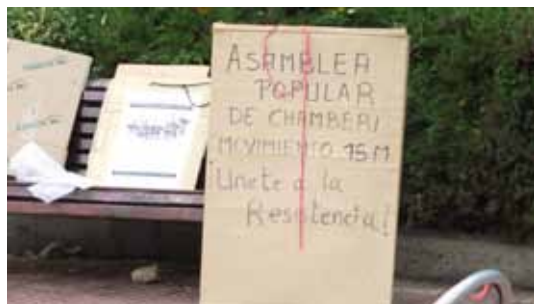 ASAMBLEA
POPULAR
DE CHAMBERI
MOVIMIENTO 15M
¡Unete a la
Resistencia!